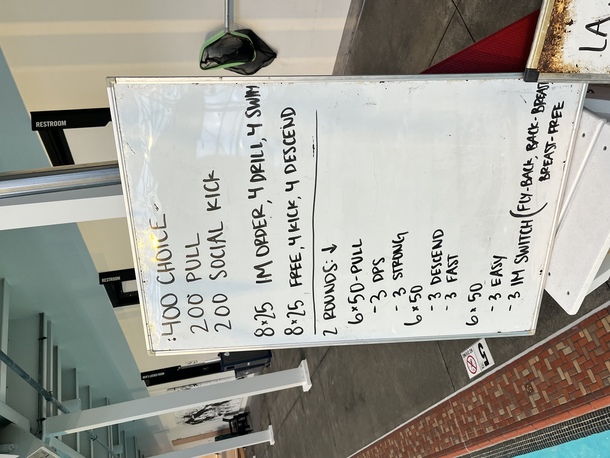 RESTROOM
RESTROOM
:400 CHOICE
200 PULL
200 SOCIAL KICK
8x25 IM ORDER, 4 DRILL, 4 SWIM
8x25 FREE, 4 KICK, 4 DESCEND
2 ROUNDS: ↓
6x50-PULL
-3 DPS
-3 STRONG
6x50
-3 DESCEND
-3 FAST
6x50
-3 EASY
-3 IM SWITCH (FLY-BACK, BACK-BREAST
BREAST-FREE
LA